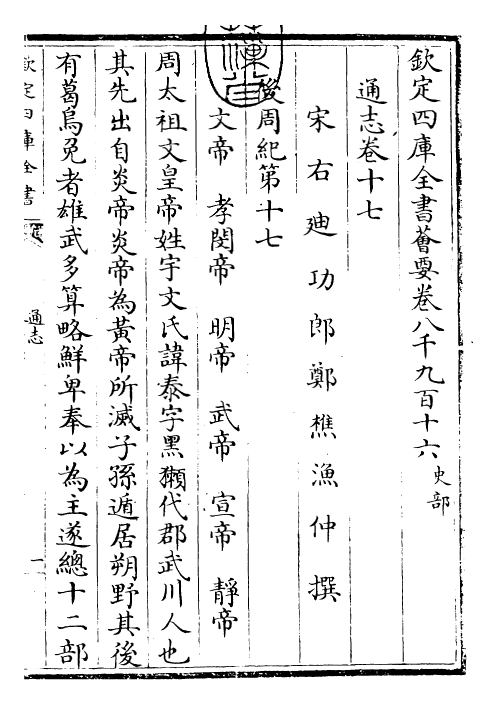 欽定四庫全書薈要卷八千九百十六 史部
通志卷十七
宋右迪功郎鄭樵漁仲撰
後周紀第十七
文帝 孝閔帝 明帝 武帝 宣帝 靜帝
周太祖文皇帝姓宇文氏諱泰字黑獺代郡武川人也
其先出自炎帝炎帝為黃帝所滅子孫遁居朔野其後
有葛烏兔者雄武多算略鮮卑奉以為主遂總十二部
欽定四庫全書
通志
一